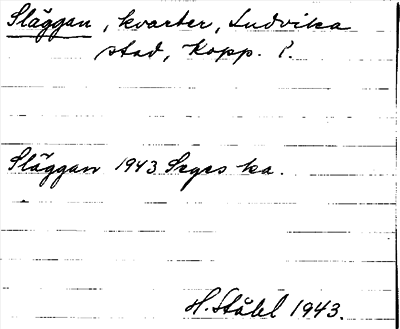 Släggan, kvarter, Ludvika
stad, Kopp. l.
Släggan 1943 Seges ka.
H. Ståhl 1943.